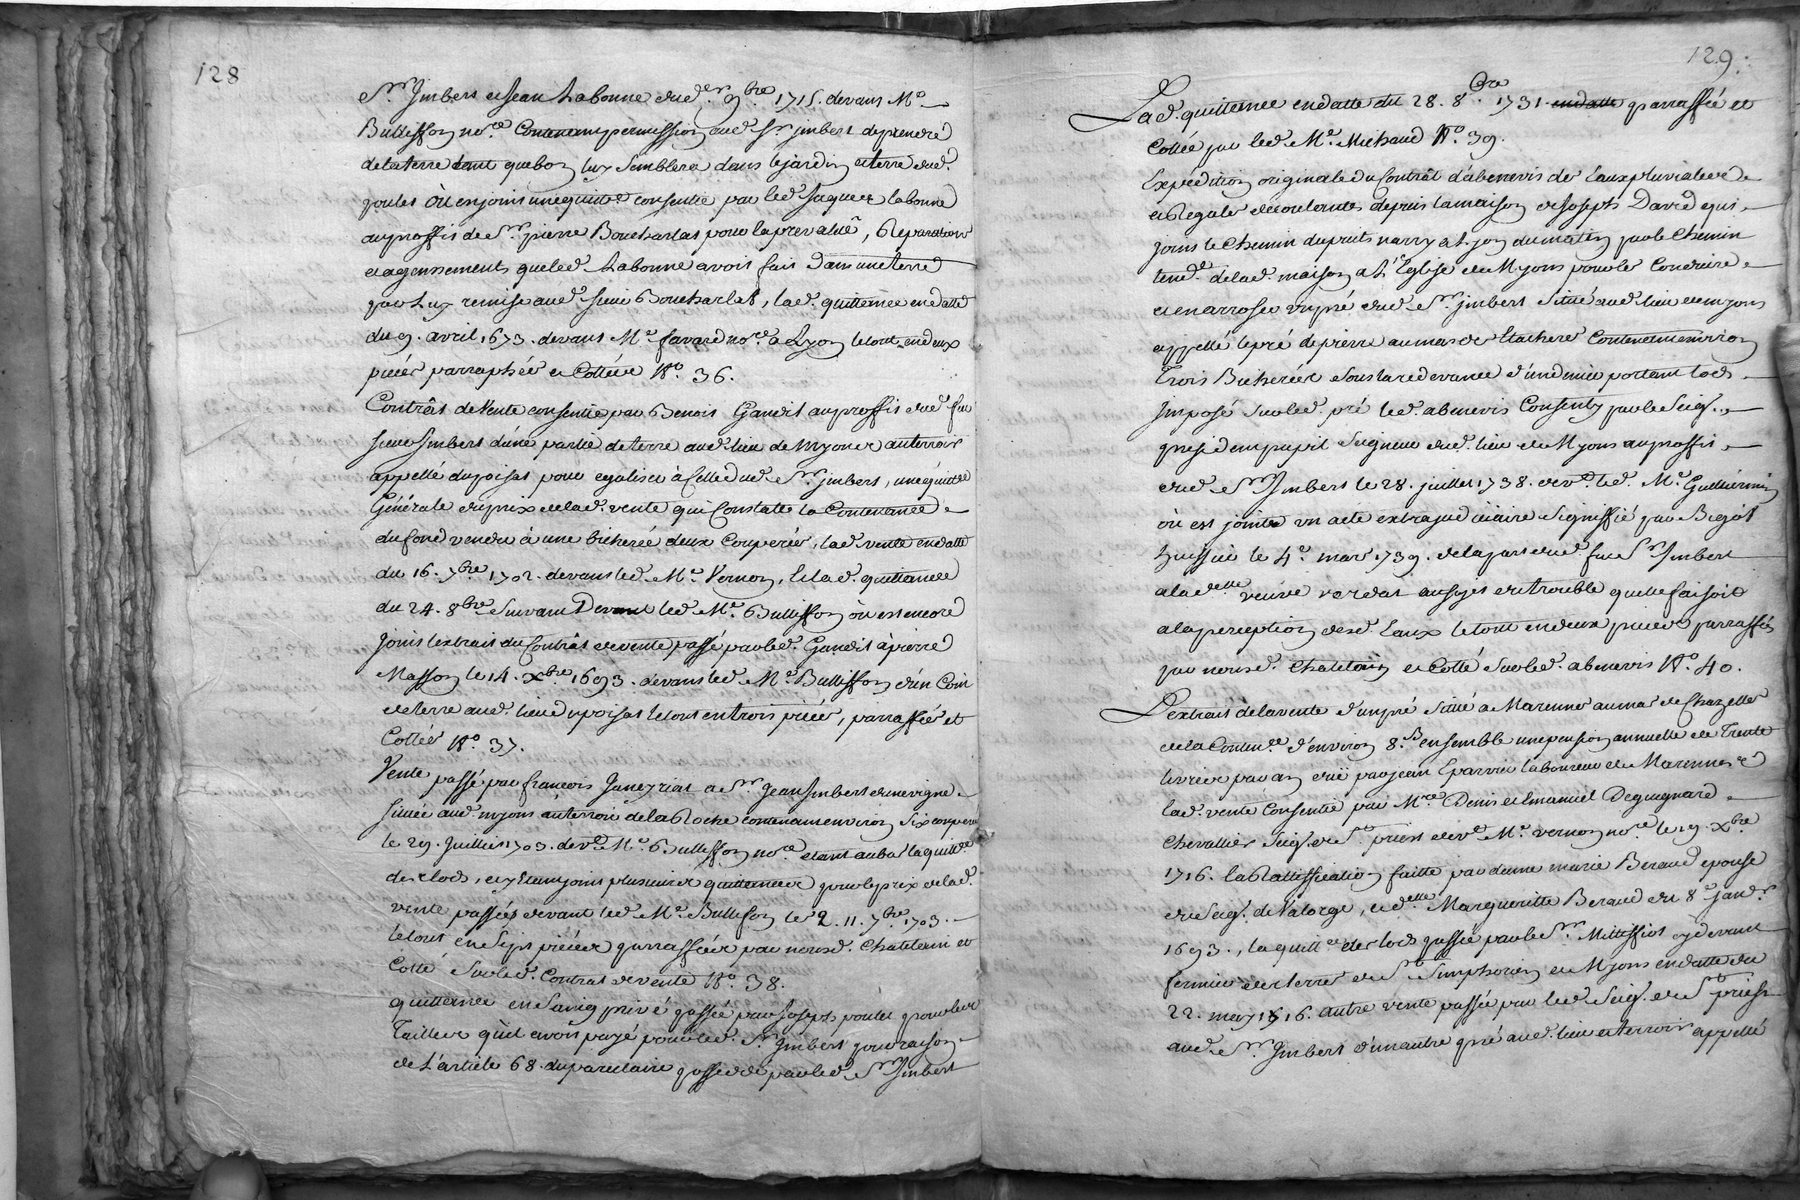 128
Sr. Jmbert et Jean Labonne dud. er. 9bre. 1715. devant Me.
Bullisson nore. Contenant permission aud. Sr. jmbert de prendre
de la terre tant que bon luy Semblera dans le jardin et terre dud.
poulet Où est joint une quittce consentie par led. Jaques Labonne
au proffit de Sr. pierre Boucharlat pour la prevaluë, Reparations
et agensements que led. Labonne avoit fait dans une terre
par Luy remise aud. Sieur Boucharlat, lad. quittence en datte
du 9. avril 1673. devant Me. favard nore. à Lyon le tout en deux
piéces parraphée et Cottée No. 36.
Contrât de Vente consentie par Benoit Gandit au proffit dud. feu
Sieur Jmbert d'une partie de terre aud. lieu de myons au terroir
appellé du poisat pour egaliser à Celle dud. Sr. jmbert, une quitte
Générale du prix de lad. vente qui Constate la Contenance
du fond vendu à une bicherée deux Couperées, lad. vente en datte
du 16. 7bre 1702. devant led. Me. Vernon, Et lad. quittance
du 24. 8bre Suivant Devant led. Me. Bullisson où est encore
joint l'extrait du Contrât de vente passé par led. Gandit à pierre
Masson le 14. Xbre 1693. devant led. Me. Bullisson d'un Coin
de terre aud. lieu du poisat le tout en trois piéces, parraffée et
Cottée No. 37.
Vente passé par francois Janeyriat a Sr. Jean Jmbert d'une vigne
Située aud. myons au terroir de la Roche contenant environ Six coupées
le 29. Juillet 1703. devt. Me. Bullisson nore. etant au bas la quittce
des lods, et y etant joint plusieurs quittences pour le prix de lad.
vente passées devant led. Me. Bullisson les 2. 11. 7bre 1703.
le tout en Sept piéces parraffées par nousd. Chatelain et
Cotté Sur led. Contrat de vente No. 38.
quittence en Seing privé passée par Joseph poulet pour les
Tailles qu'il avoit payé pour led. Sr. Jmbert pour raison
de L'article 68. du parcelaire possedé par led. Sr. Jmbert
129.
Lad. quittence en datte du 28. 8bre. 1731. en datte parraffée et
Cottée par led. Me. Michaud No. 39.
Expedition originale du Contrât d'abenevis des Eaux pluviales
et Regales decoulantes depuis la maison de Joseph David qui
joint le chemin du puits narry a Lyon du matin par le Chemin
tend. de lad. maison a L'Eglise de Myons pour les Conduire
et en arroser un pré dud. Sr. jmbert Situé aud. lieu de myons
appellé le pré de pierre au mas de Contenant environ
Trois Bicherées Sous la redevance d'une portant lods
Jmposé Sur led. pré led. abenevis Consenty par le Seigr.
president pupil Seigneur dud. lieu de Myons au proffit
dud. Sr. Jmbert le 28. juillet 1738. devt. led. Me. Guillermin
où est jointe un acte extrajudiciaire Signiffié par Bigot
huissier le 4e. mars 1739. de la part dud. feu Sr. Jmbert
a la delle veuve verdat au sujet du trouble quelle faisoit
a la perception desd. Eaux le tout en deux piéces parraffée
par nousd. Chatelain et Cotté Sur led. abenevis No. 40.
L'extrait de la vente d'un pré Situé a Marennes au mas de Chazelle
de la Contence. d'environ 8. B ensemble une pension annuelle de Trente
livres par an dûe par jean Eparvier laboureur de Marennes
lad. vente Consentie par Mre. Denis Emanuel Deguignard
Chevallier Seigr. de St. priest devt. Me. vernon nore. le 19. Xbre.
1716. la Rattiffication faitte par dame marie Beraud epouse
du Seigr. de Valorge, et delle Margueritte Beraud du 8e janer.
1693., la quittce des lods passée par le Sr. Mitiffiot cy devant
fermier des terres de St. Simphorien et Myons en datte du
22. may 1716. autre vente passée par led. Seigr. de St. priest
aud. Sr. Jmbert d'un autre pré aud. lieu et terroir appellé